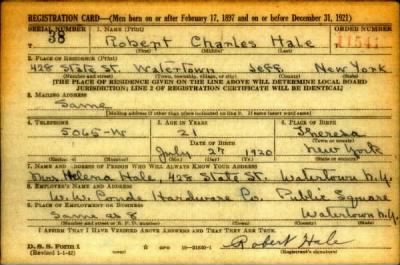 REGISTRATION CARD—(Men born on or after February 17, 1897 and on or before December 31, 1921)
SERIAL NUMBER 1. NAME (Print) ORDER NUMBER
38 Robert Charles Hale 11541
(First) (Middle) (Last)
2. PLACE OF RESIDENCE (Print)
428 State St. Watertown Jeff New York
(Number and street) (Town, township, village, or city) (County) (State)
[THE PLACE OF RESIDENCE GIVEN ON THE LINE ABOVE WILL DETERMINE LOCAL BOARD
JURISDICTION; LINE 2 OF REGISTRATION CERTIFICATE WILL BE IDENTICAL]
3. MAILING ADDRESS
Same
[Mailing address if other than place indicated on line 2. If same insert word same]
4. TELEPHONE 5. AGE IN YEARS 6. PLACE OF BIRTH
5065-W 21 Theresa
DATE OF BIRTH (Town or county)
July 27 1920 New York
(Exchange) (Number) (Mo.) (Day) (Yr.) (State or country)
7. NAME AND ADDRESS OF PERSON WHO WILL ALWAYS KNOW YOUR ADDRESS
Mrs Helena Hale, 428 State St. Watertown N.Y.
8. EMPLOYER'S NAME AND ADDRESS
W.W. Conde Hardware Co. Public Square
9. PLACE OF EMPLOYMENT OR BUSINESS
Same as 8 Watertown N.Y.
(Number and street or R. F. D. number) (Town) (County) (State)
I AFFIRM THAT I HAVE VERIFIED ABOVE ANSWERS AND THAT THEY ARE TRUE.
D. S. S. Form 1
(Revised 1-1-42) Robert Hale
(Registrant's signature)